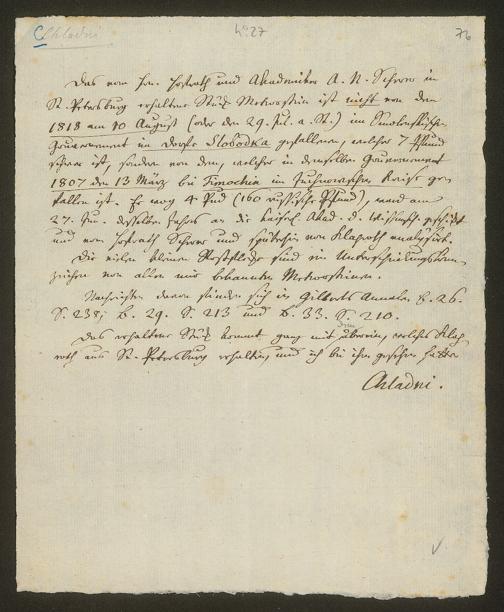 Chladni
No 27
76
Das vom Hrn. Hofrath und Akademiker A. N. Scherer in
St. Petersburg erhaltene Stück Meteorstein ist nicht von dem
1818 am 10 August (oder den 29. Jul. a. St.) im Smolenskischen
Gouvernement im Dorfe Slobodka gefallenen, welcher 7 Pfund
schwer ist, sondern von dem, welcher in demselben Gouvernement
1807 den 13 März bei Timochin im Juchnowschen Kreise ge-
fallen ist. Er wog 4 Pud (160 russische Pfund), ward am
27. Jun. desselben Jahres an die kaiserl. Akad. d. Wissensch. geschickt
und vom Hofrath Scherer und späterhin von Klaproth analysirt.
Die vielen kleinen Rostflecke sind ein Unterscheidungskenn-
zeichen von allen mir bekannten Meteorsteinen.
Nachrichten davon finden sich in Gilberts Annalen B. 26.
S. 238; B. 29. S. 213 und B. 33. S. 210.
Das erhaltene Stück kommt ganz mit dem überein, welches Klap-
roth aus St. Petersburg erhalten, und ich bei ihm gesehen hatte.
Chladni.